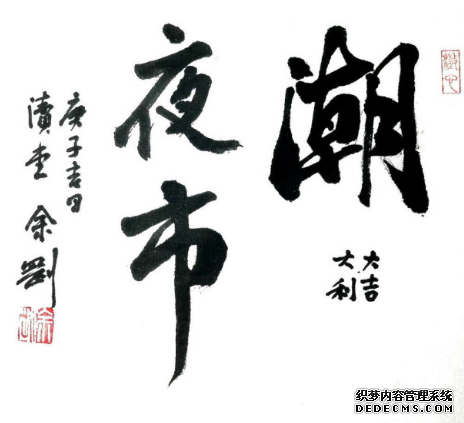 潮
大吉
大利
夜市
庚子吉日
渎堂 余刚
织梦内容管理系统
DEDECMS.COM